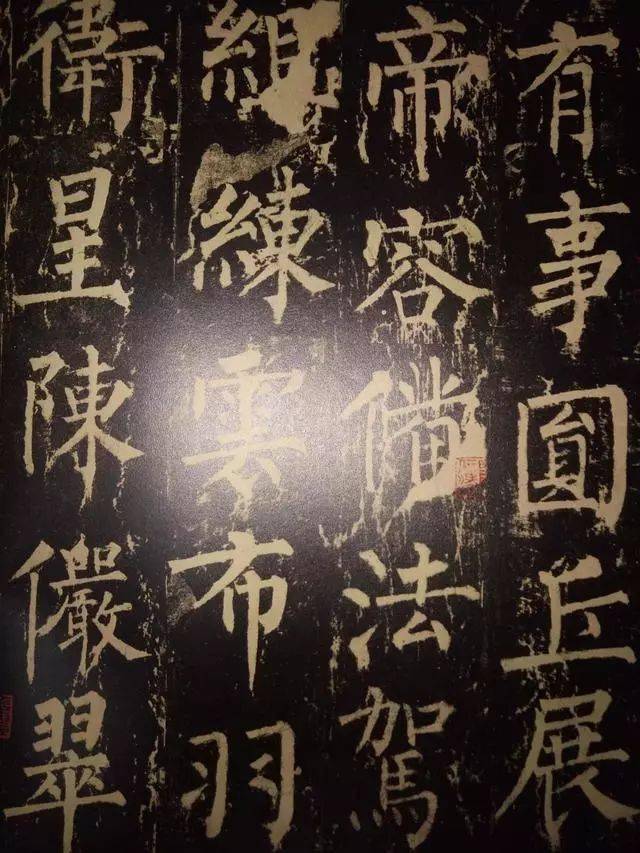 有事圓丘展
帝容備法駕
組練雲布羽
衛星陳儼翠